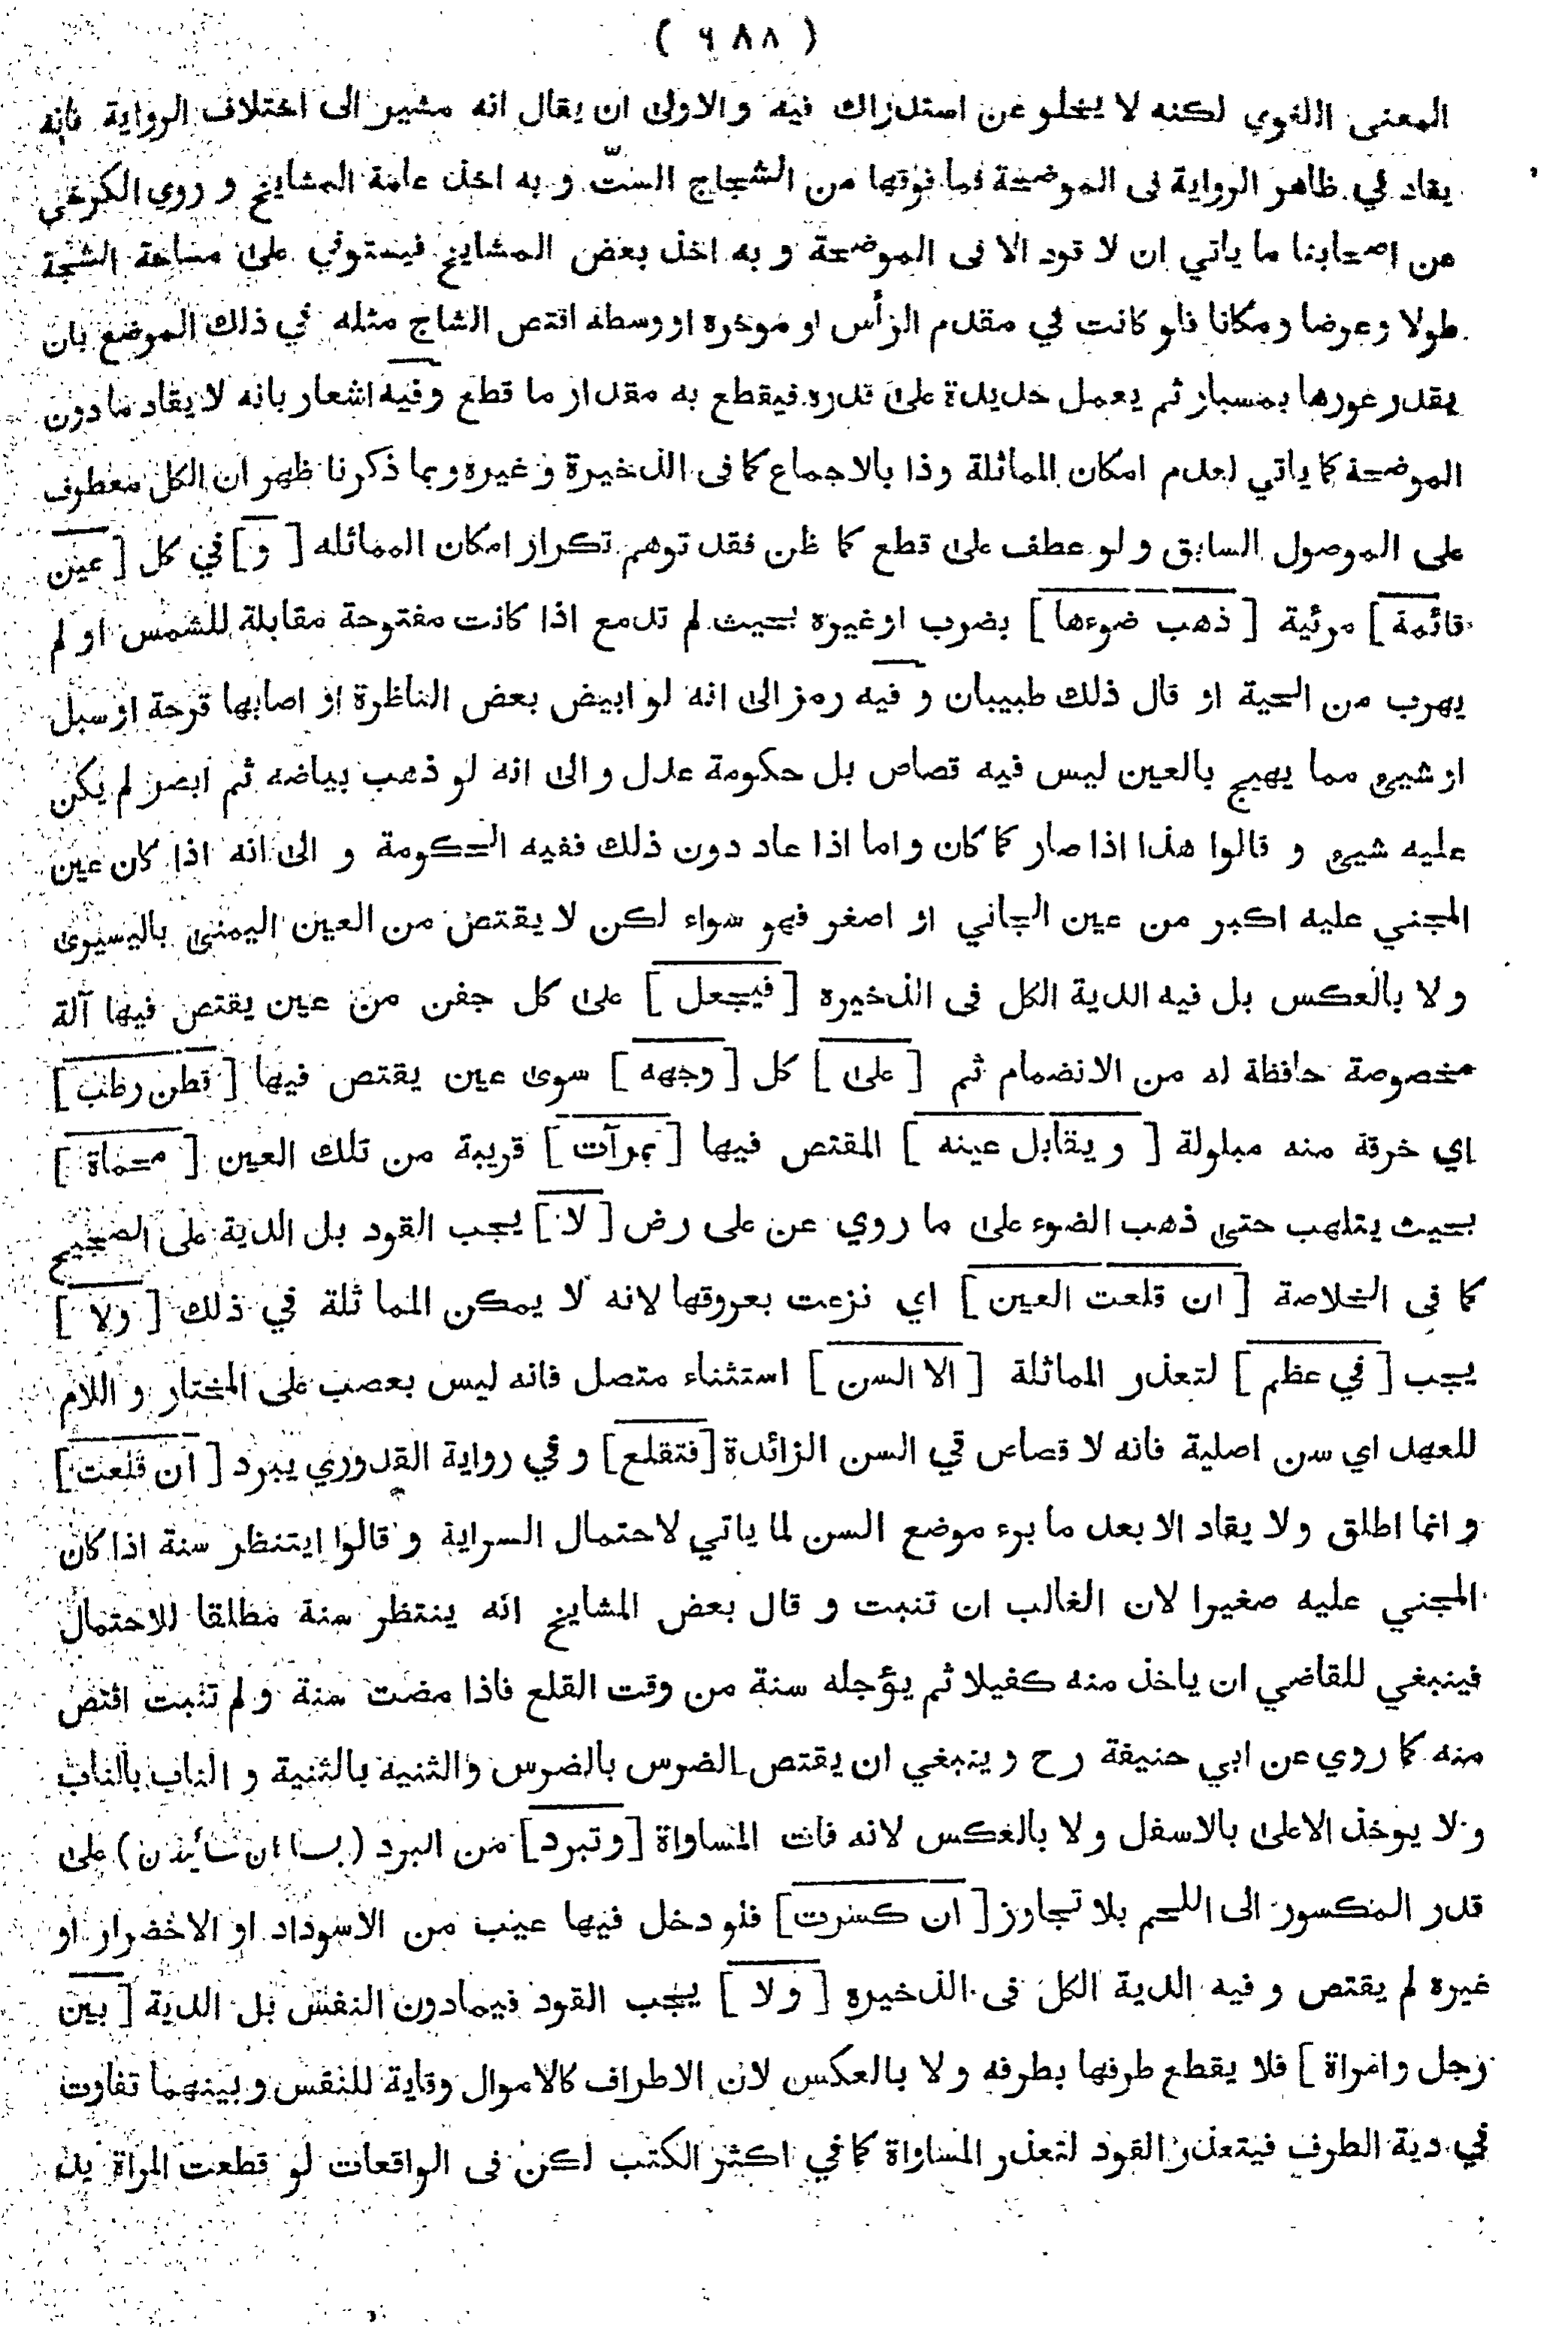 ( ٦٨٨ )
المعنى اللغوي لكنه لا يخلو عن استدراك فيه والاولى ان يقال انه مشير الى اختلاف الرواية فانه
يقاد في ظاهر الرواية فى الموضحة فما فوقها من الشجاج الستّ و به اخذ عامة المشايخ و روي الكرخي
عن اصحابنا ما ياتي ان لا قود الا فى الموضحة و به اخذ بعض المشايخ فيستوفي على مساحة الشجة
طولا وعرضا ومكانا فلو كانت في مقدم الرأس او موخره او وسطه اقتص الشاج مثله في ذلك الموضع بان
يقدر غورها بمسبار ثم يعمل حديدة على قدره فيقطع به مقدار ما قطع وفيه اشعار بانه لا يقاد ما دون
الموضحة كما ياتي لعدم امكان المماثلة وذا بالاجماع كما فى الذخيرة و غيره وبما ذكرنا ظهر ان الكل معطوف
على الموصول السابق و لو عطف على قطع كما ظن فقد توهم تكرار امكان المماثله [ و ] في كل [ عين
قائمة ] مرئية [ ذهب ضوءها ] بضرب او غيره بحيث لم تدمع اذا كانت مفتوحة مقابلة للشمس او لم
يهرب من الحية او قال ذلك طبيبان و فيه رمز الى انه لو ابيض بعض الناظرة او اصابها قرحة او سبل
او شيئ مما يهيج بالعين ليس فيه قصاص بل حكومة عدل و الى انه لو ذهب بياضه ثم ابصر لم يكن
عليه شيئ و قالوا هذا اذا صار كما كان و اما اذا عاد دون ذلك ففيه الحكومة و الى انه اذا كان عين
المجني عليه اكبر من عين الجاني او اصغر فهو سواء لكن لا يقتص من العين اليمنى باليسرى
و لا بالعكس بل فيه الدية الكل فى الذخيره [ فيجعل ] على كل جفن من عين يقتص فيها آلة
مخصوصة حافظة له من الانضمام ثم [ على ] كل [ وجهه ] سوى عين يقتص فيها [ قطن رطب ]
اي خرقة منه مبلولة [ و يقابل عينه ] المقتص فيها [ بمرآت ] قريبة من تلك العين [ محماة ]
بحيث يتلهب حتى ذهب الضوء على ما روي عن على رض [ لا ] يجب القود بل الدية على الصحيح
كما فى الخلاصة [ ان قلعت العين ] اي نزعت بعروقها لانه لا يمكن المماثلة في ذلك [ ولا ]
يجب [ في عظم ] لتعذر المماثلة [ الا السن ] استثناء متصل فانه ليس بعصب على المختار و اللام
للعهد اي سن اصلية فانه لا قصاص في السن الزائدة [ فتقلع ] و في رواية القدوري يبرد [ ان قلعت ]
و انما اطلق و لا يقاد الا بعد ما برء موضع السن لما ياتي لاحتمال السراية و قالوا ينتظر سنة اذا كان
المجني عليه صغيرا لان الغالب ان تنبت و قال بعض المشايخ انه ينتظر سنة مطلقا للاحتمال
فينبغي للقاضي ان ياخذ منه كفيلا ثم يؤجله سنة من وقت القلع فاذا مضت سنة و لم تنبت اقتص
منه كما روي عن ابي حنيفة رح و ينبغي ان يقتص الضرس بالضرس والثنيه بالثنية و الناب بالناب
و لا يوخذ الاعلى بالاسفل و لا بالعكس لانه فات المساواة [ وتبرد ] من البرد على
قدر المكسور الى اللحم بلا تجاوز [ ان كسرت ] فلو دخل فيها عيب من الاسوداد او الاخضرار او
غيره لم يقتص و فيه الدية الكل فى الذخيره [ ولا ] يجب القود فيما دون النفس بل الدية [ بين
رجل و امراة ] فلا يقطع طرفها بطرفه و لا بالعكس لان الاطراف كالاموال وقاية للنفس و بينهما تفاوت
في دية الطرف فيتعذر القود لتعذر المساواة كما في اكثر الكتب لكن فى الواقعات لو قطعت المراة يد